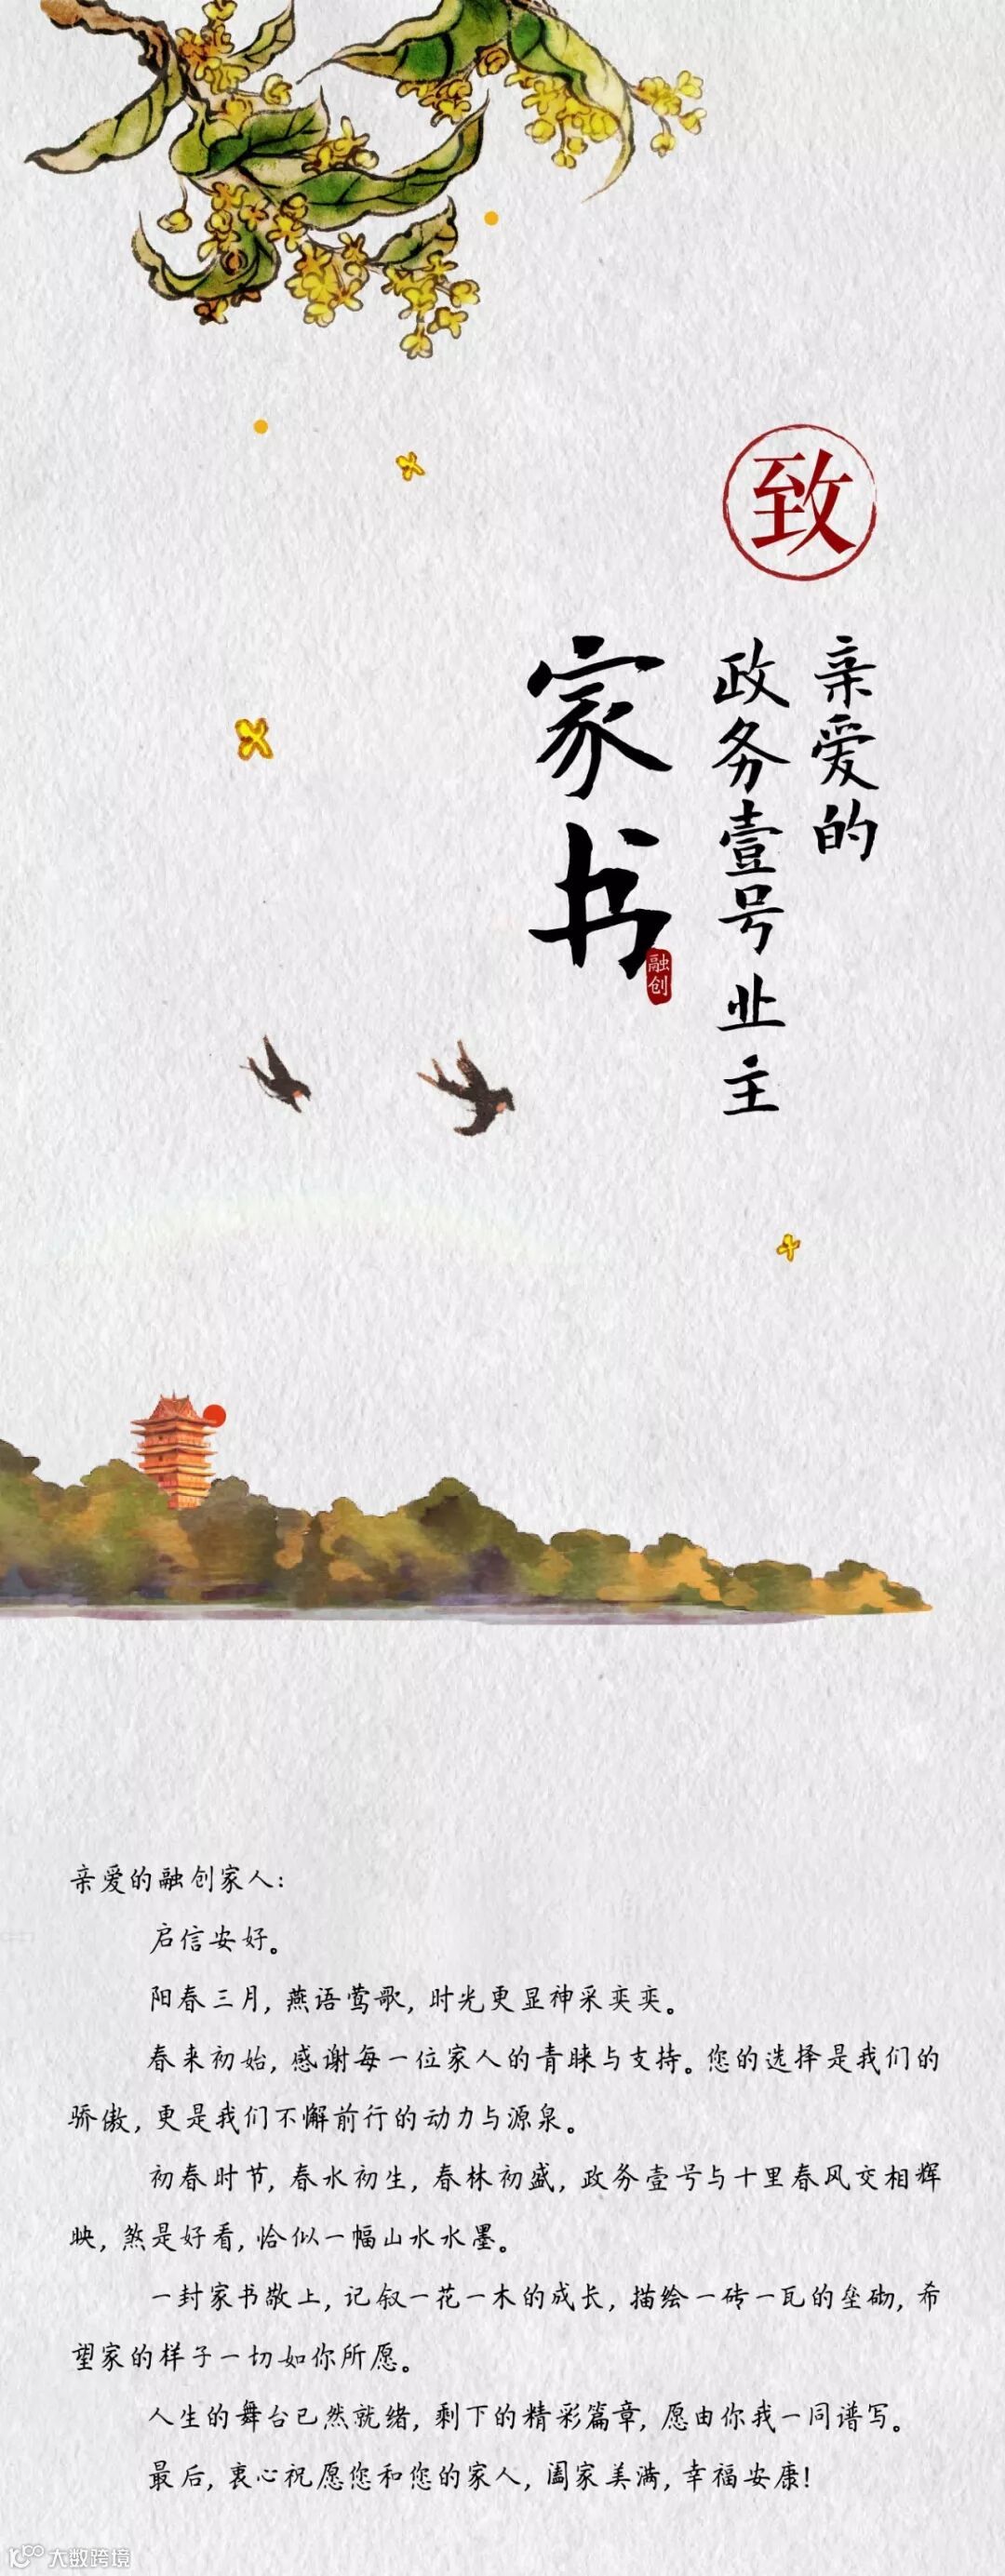 致
亲爱的
政务壹号业主
家书
融创
亲爱的融创家人：
启信安好。
阳春三月，燕语莺歌，时光更显神采奕奕。
春来初始，感谢每一位家人的青睐与支持。您的选择是我们的
骄傲，更是我们不懈前行的动力与源泉。
初春时节，春水初生，春林初盛，政务壹号与十里春风交相辉
映，煞是好看，恰似一幅山水水墨。
一封家书敬上，记叙一花一木的成长，描绘一砖一瓦的垒砌，希
望家的样子一切如你所愿。
人生的舞台已然就绪，剩下的精彩篇章，愿由你我一同谱写。
最后，衷心祝愿您和您的家人，阖家美满，幸福安康！
大数跨境